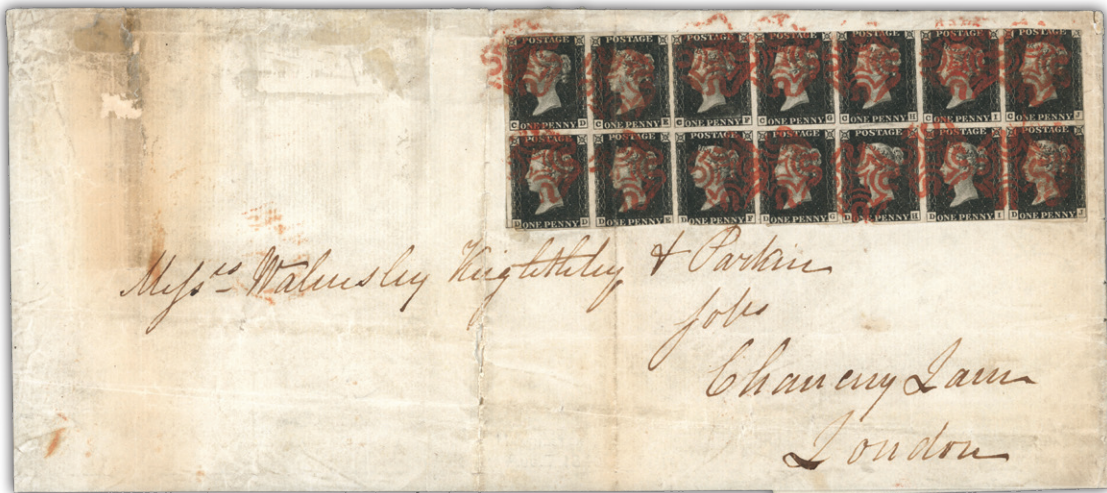 POSTAGE POSTAGE POSTAGE POSTAGE POSTAGE POSTAGE POSTAGE
C ONE PENNY D C ONE PENNY E C ONE PENNY F C ONE PENNY G C ONE PENNY H C ONE PENNY I C ONE PENNY J
POSTAGE POSTAGE POSTAGE POSTAGE POSTAGE POSTAGE POSTAGE
D ONE PENNY D D ONE PENNY E D ONE PENNY F D ONE PENNY G D ONE PENNY H D ONE PENNY I D ONE PENNY J
Messrs Walmsley Keightley & Parkin
Solrs
Chancery Lane
London